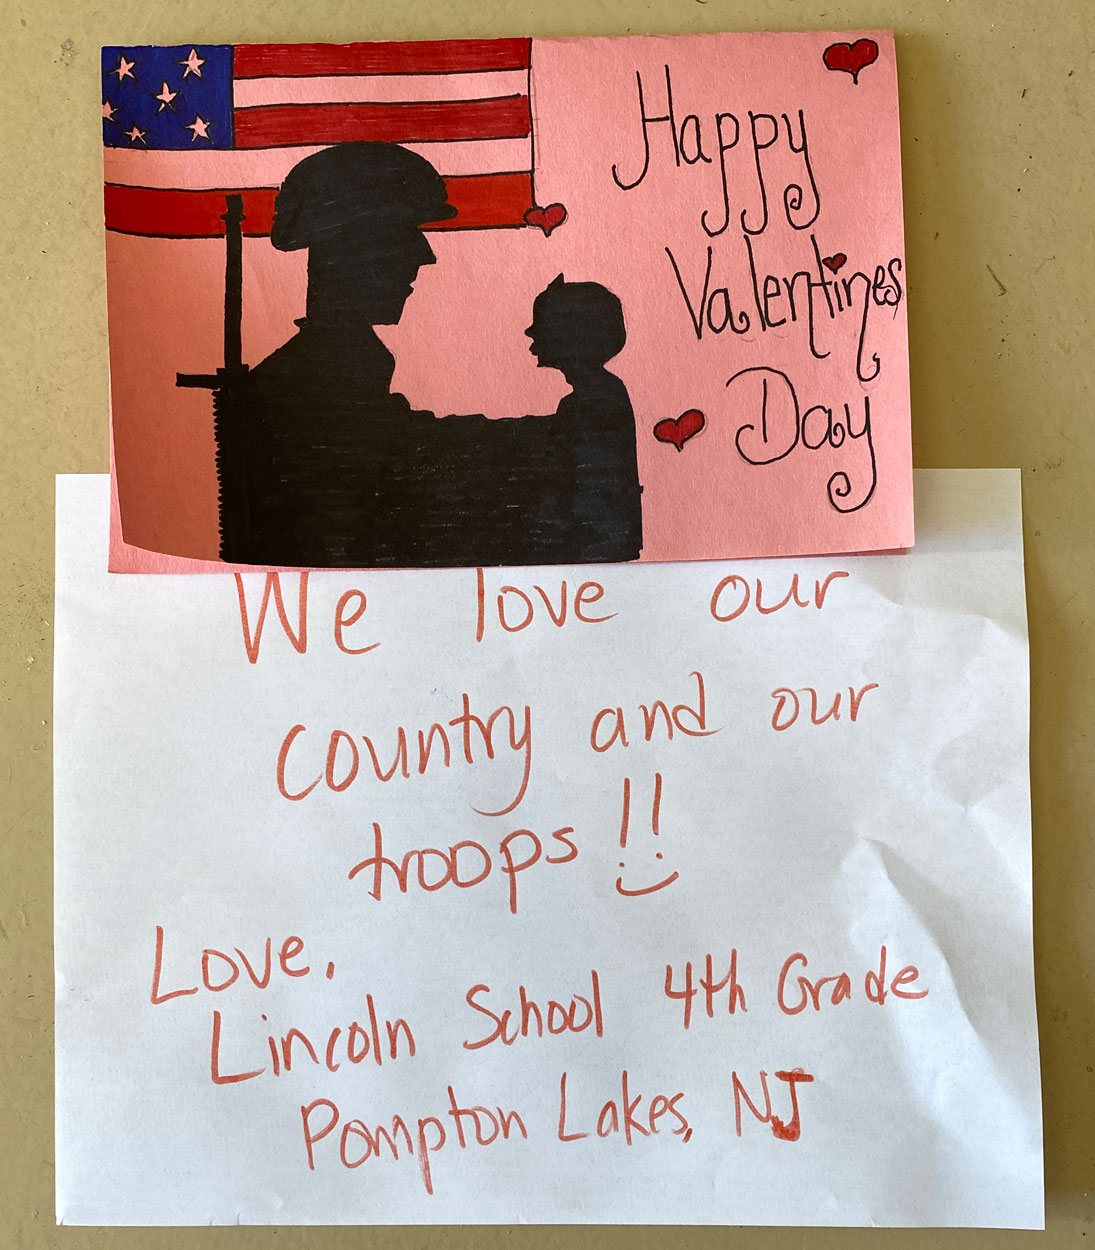 Happy
Valentines
Day
We love our
country and our
troops!!
Love,
Lincoln School 4th Grade
Pompton Lakes, NJ